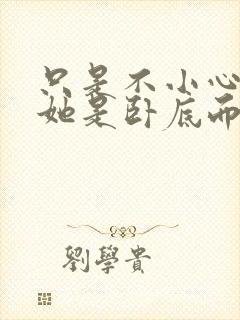 只是不小心
她是卧底而
劉學貴